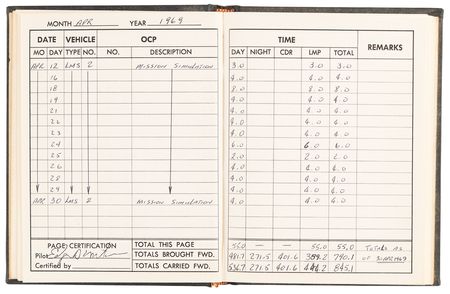 MONTH APR YEAR 1969
DATE VEHICLE OCP TIME REMARKS
MO DAY TYPE NO. NO. DESCRIPTION DAY NIGHT CDR LMP TOTAL
APR 12 LMS 2 MISSION SIMULATION 3.0 3.0 3.0
16 4.0 4.0 4.0
18 8.0 8.0 8.0
19 4.0 4.0 4.0
21 4.0 4.0 4.0
22 4.0 4.0 4.0
23 4.0 4.0 4.0
24 6.0 6.0 6.0
25 2.0 2.0 2.0
26 4.0 4.0 4.0
28 4.0 4.0 4.0
29 4.0 4.0 4.0
APR 30 LMS 2 MISSION SIMULATION 4.0 4.0 4.0
PAGE CERTIFICATION TOTAL THIS PAGE 55.0 — — 55.0 55.0 TOTALS AS
Pilot TOTALS BROUGHT FWD. 481.7 271.5 401.6 389.2 790.1 OF 31 MAR 69
Certified by TOTALS CARRIED FWD. 536.7 271.5 401.6 444.2 845.1